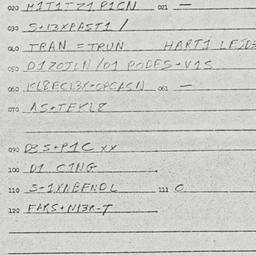 020 H1T1TZ1 P1CN 021 —
030 S+13XPAST1 /
040 TRAN = TRUN HART1 LFIDS
050 D1ZOJLN / O1 PODES+V1S
060 KL8FCL3X+OPCASN 061 —
070 AS+TFKL8
090 D3 S+P1C XX
100 D1 C1NG
110 S-1XNBFNDL 111 O
120 FARS+N13R-T